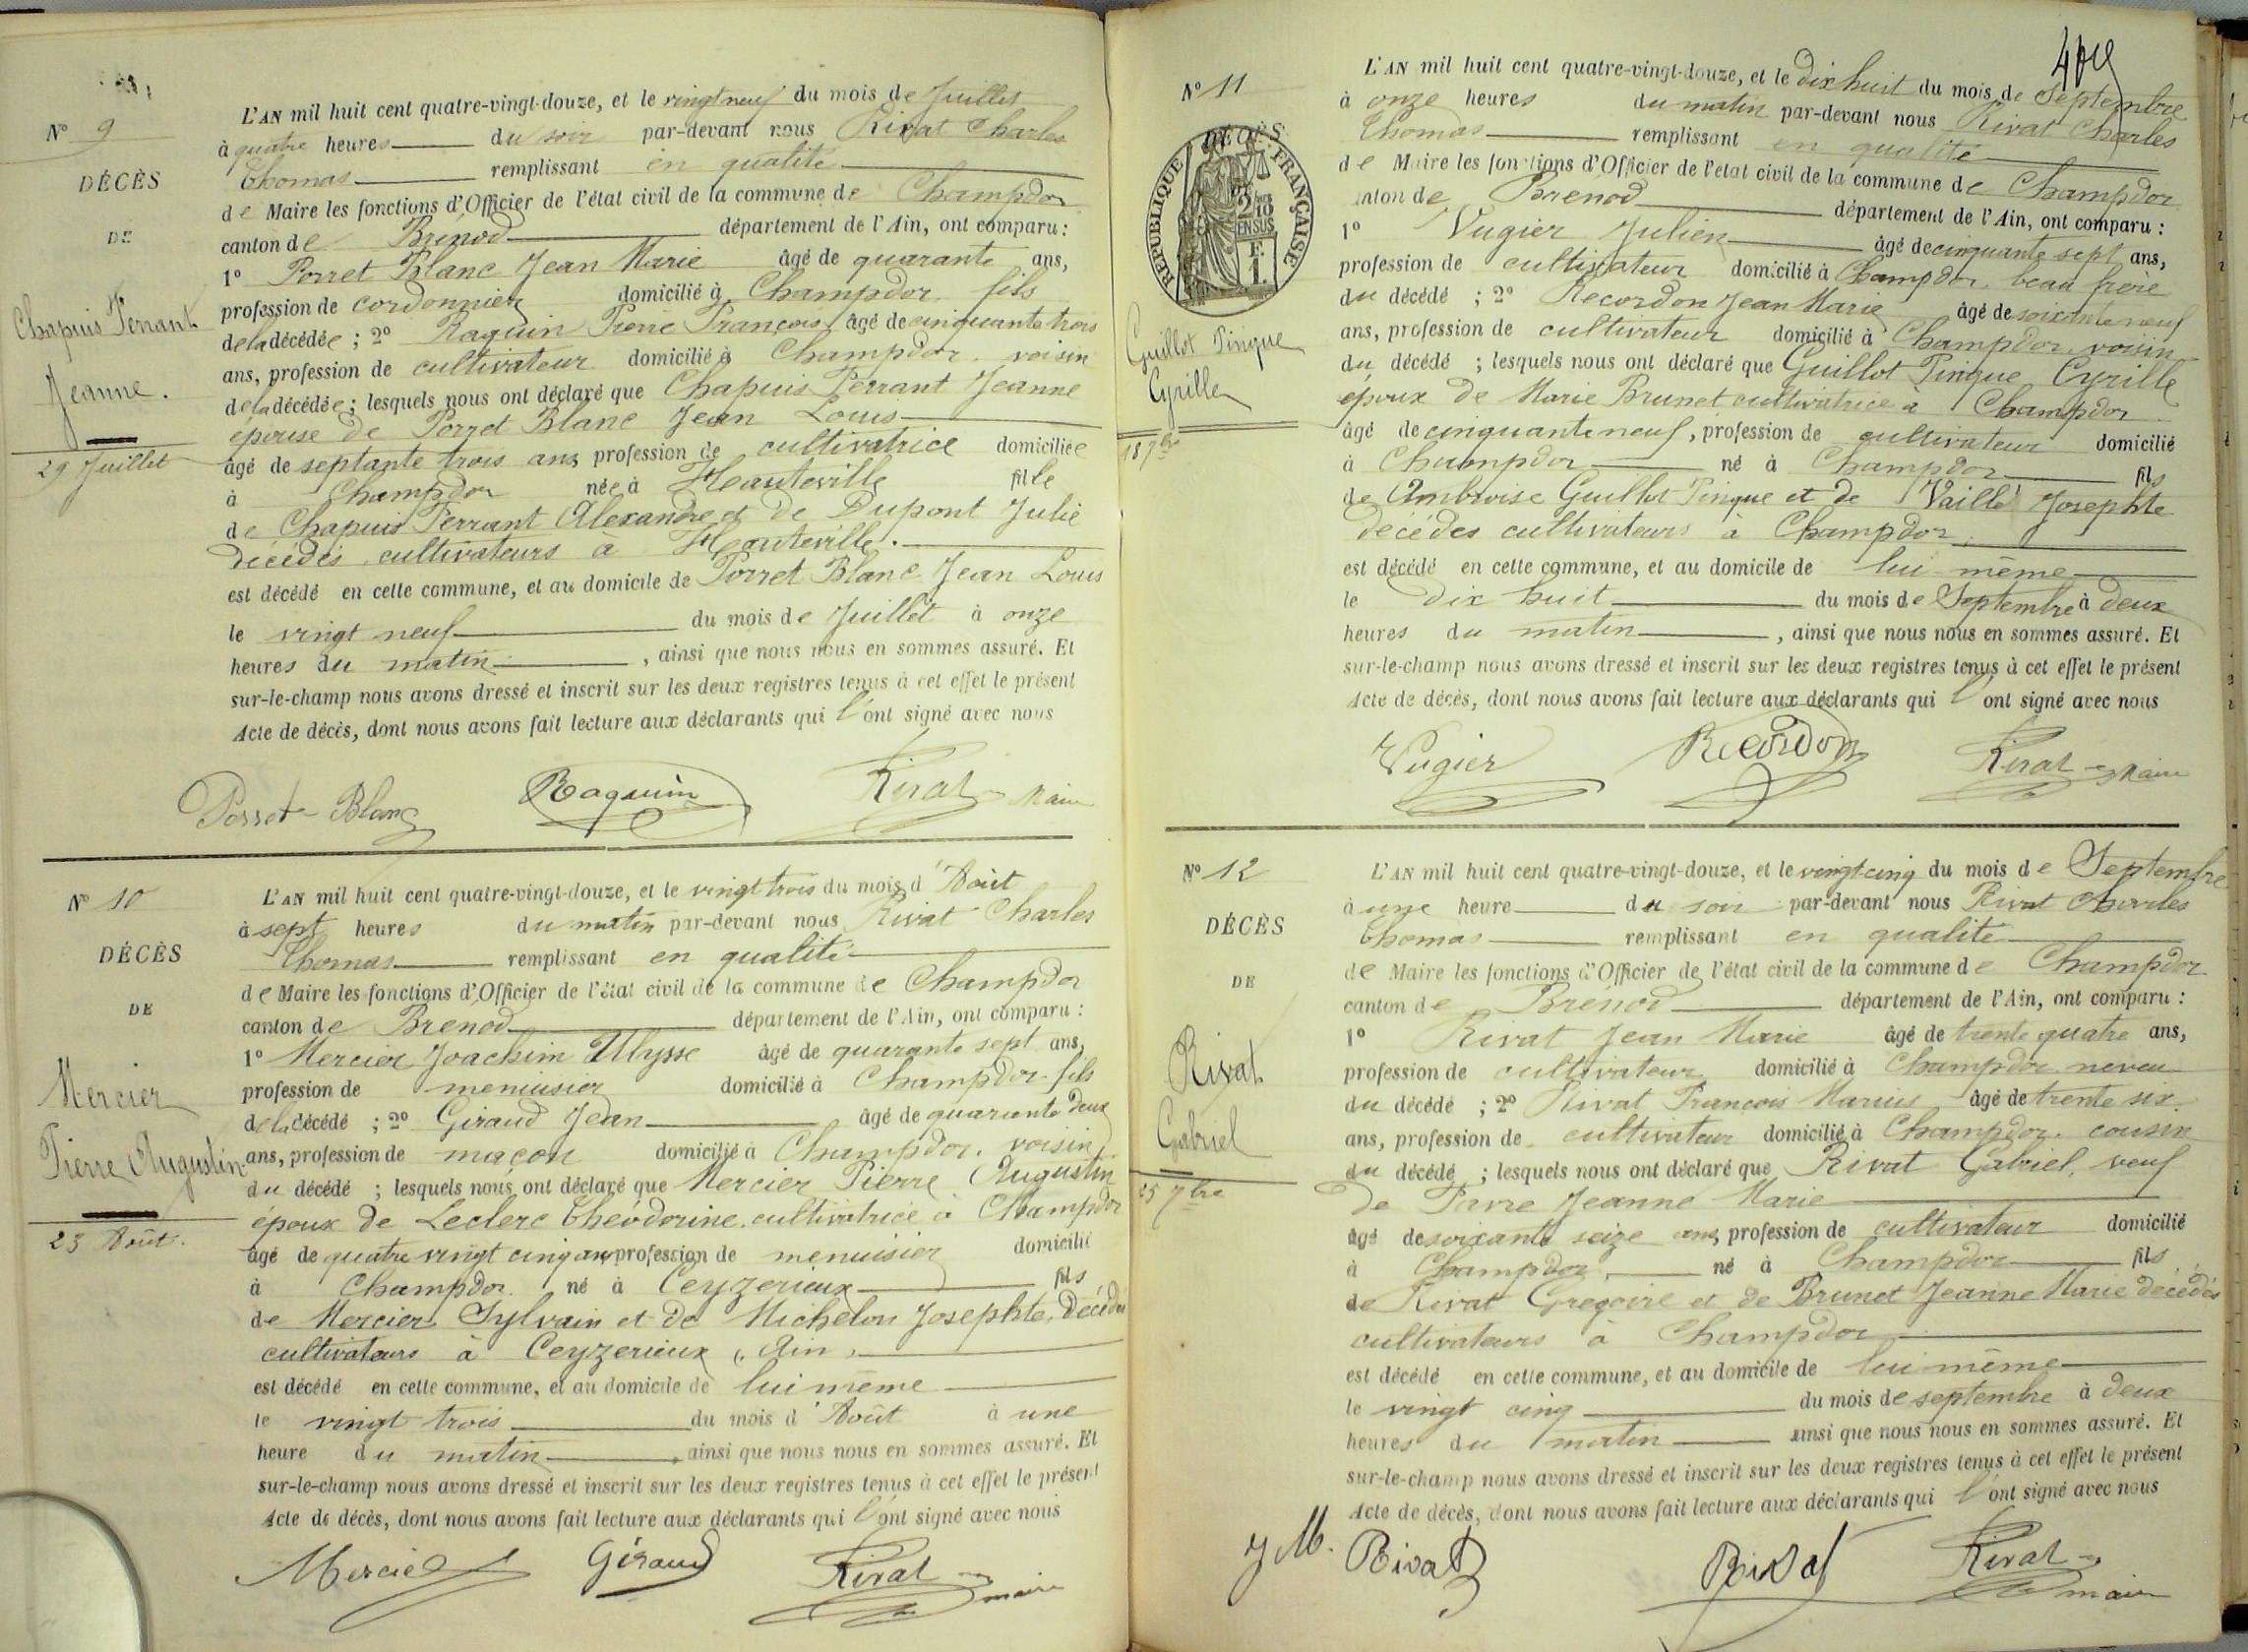 N° 9
DÉCÈS
DE
Chapuis Perrant
Jeanne.
29 Juillet
L'AN mil huit cent quatre-vingt-douze, et le vingt neuf du mois de Juillet
à quatre heures du soir par-devant nous Rivat Charles
Thomas remplissant en qualité
de Maire les fonctions d'Officier de l'état civil de la commune de Champdor
canton de Brénod département de l'Ain, ont comparu :
1° Porret Blanc Jean Marie âgé de quarante ans,
profession de cordonnier domicilié à Champdor fils
de la décédée ; 2° Raquin Pierre François, âgé de cinquante trois
ans, profession de cultivateur domicilié à Champdor. voisin
de la décédée ; lesquels nous ont déclaré que Chapuis Perrant Jeanne
épouse de Porret Blanc Jean Louis
âgé de septante trois ans profession de cultivatrice domiciliée
à Champdor née à Hauteville fille
de Chapuis Perrant Alexandre et de Dupont Julie
décédés cultivateurs à Hauteville.
est décédé en cette commune, et au domicile de Porret Blanc Jean Louis
le vingt neuf du mois de Juillet à onze
heures du matin , ainsi que nous nous en sommes assuré. Et
sur-le-champ nous avons dressé et inscrit sur les deux registres tenus à cet effet le présent
Acte de décès, dont nous avons fait lecture aux déclarants qui l'ont signé avec nous
Porret-Blanc Raquin Rivat Maire
N° 10
DÉCÈS
DE
Mercier
Pierre Augustin
23 Août.
L'AN mil huit cent quatre-vingt-douze, et le vingt trois du mois d'Août
à sept heures du matin par-devant nous Rivat Charles
Thomas remplissant en qualité
de Maire les fonctions d'Officier de l'état civil de la commune de Champdor
canton de Brénod département de l'Ain, ont comparu :
1° Mercier Joachim Ulysse âgé de quarante sept ans,
profession de menuisier domicilié à Champdor fils
de la décédé ; 2° Giraud Jean âgé de quarante deux
ans, profession de maçon domicilié à Champdor. voisin
du décédé ; lesquels nous ont déclaré que Mercier Pierre Augustin
époux de Leclerc Théodorine. cultivatrice à Champdor
âgé de quatre vingt cinq ans profession de menuisier domicilié
à Champdor né à Ceyzerieux fils
de Mercier Sylvain et de Michelon Josephte, décédés
cultivateurs à Ceyzerieux (Ain)
est décédé en cette commune, et au domicile de lui même
le vingt trois du mois d'Août à une
heure du matin , ainsi que nous nous en sommes assuré. Et
sur-le-champ nous avons dressé et inscrit sur les deux registres tenus à cet effet le présent
Acte de décès, dont nous avons fait lecture aux déclarants qui l'ont signé avec nous
Mercier Giraud Rivat maire
N° 11
DÉCÈS
RÉPUBLIQUE FRANÇAISE
2/10
EN SUS
F.
1.
Guillot Pinque
Cyrille
18 7bre
L'AN mil huit cent quatre-vingt-douze, et le dix huit du mois de Septembre
à onze heures du matin par-devant nous Rivat Charles
Thomas remplissant en qualité
de Maire les fonctions d'Officier de l'état civil de la commune de Champdor
canton de Brenod département de l'Ain, ont comparu :
1° Vugier Julien âgé de cinquante sept ans,
profession de cultivateur domicilié à Champdor. beau frère
du décédé ; 2° Recordon Jean Marie âgé de soixante neuf
ans, profession de cultivateur domicilié à Champdor. voisin
du décédé ; lesquels nous ont déclaré que Guillot Pinque Cyrille
époux de Marie Brunet cultivatrice à Champdor
âgé de cinquante neuf, profession de cultivateur domicilié
à Champdor né à Champdor fils
de Ambroise Guillot Pinque et de Vaillé Josephte
décédés cultivateurs à Champdor.
est décédé en cette commune, et au domicile de lui même
le dix huit du mois de Septembre à deux
heures du matin , ainsi que nous nous en sommes assuré. Et
sur-le-champ nous avons dressé et inscrit sur les deux registres tenus à cet effet le présent
Acte de décès, dont nous avons fait lecture aux déclarants qui l'ont signé avec nous
Vugier Recordon Rivat Maire
N° 12
DÉCÈS
DE
Rivat
Gabriel
25 7bre
L'AN mil huit cent quatre-vingt-douze, et le vingt cinq du mois de Septembre
à une heure du soir par-devant nous Rivat Charles
Thomas remplissant en qualité
de Maire les fonctions d'Officier de l'état civil de la commune de Champdor
canton de Brénod département de l'Ain, ont comparu :
1° Rivat Jean Marie âgé de trente quatre ans,
profession de cultivateur domicilié à Champdor neveu
du décédé ; 2° Rivat François Marius âgé de trente six
ans, profession de cultivateur domicilié à Champdor. cousin
du décédé ; lesquels nous ont déclaré que Rivat Gabriel, veuf
de Pavre Jeanne Marie
âgé de soixante seize ans, profession de cultivateur domicilié
à Champdor, né à Champdor fils
de Rivat Gregoire et de Brunet Jeanne Marie décédés
cultivateurs à Champdor
est décédé en cette commune, et au domicile de lui même
le vingt cinq du mois de septembre à deux
heures du matin ainsi que nous nous en sommes assuré. Et
sur-le-champ nous avons dressé et inscrit sur les deux registres tenus à cet effet le présent
Acte de décès, dont nous avons fait lecture aux déclarants qui l'ont signé avec nous
J M. Rivat Rivat Rivat maire